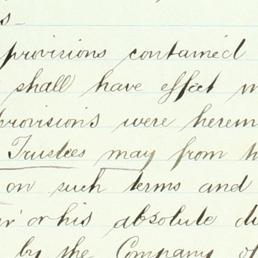 s—
provisions contained
shall have effect
provisions were
Trustees may from
on such terms and
or his absolute
by the Company of